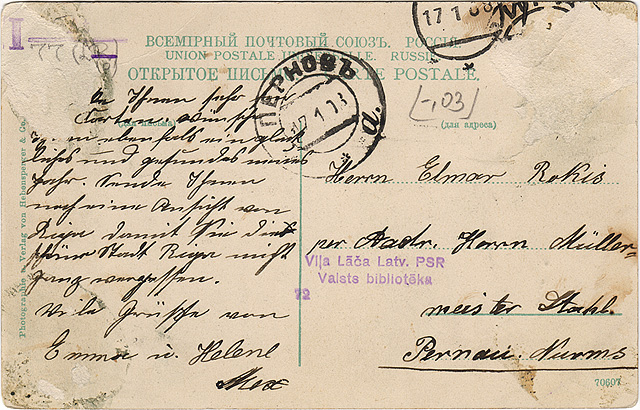 I
77
17 1 08
ВСЕМІРНЫЙ ПОЧТОВЫЙ СОЮЗЪ. РОССІЯ.
UNION POSTALE UNIVERSELLE. RUSSIE
ОТКРЫТОЕ ПИСЬМО CARTE POSTALE.
ПЕРНОВЪ
17 1 08
a.
[-103]
(для адреса)
Ihnen sehr
Karten. wünsche
ebenfalls ein glück
liches und gesundes neues
Jahr. Sende Ihnen
noch eine Ansicht von
Riga damit Sie die
schöne Stadt Riga nicht
ganz vergessen.
Viele Grüsse von
Emma u. Helene
Max
Herrn Elmar Rokis
per Aadr. Herrn Müller-
meister Stahl.
Pernau. Nurms
Viļa Lāča Latv. PSR
Valsts bibliotēka
72
Photographie u. Verlag von Hebensperger & Co.
70607